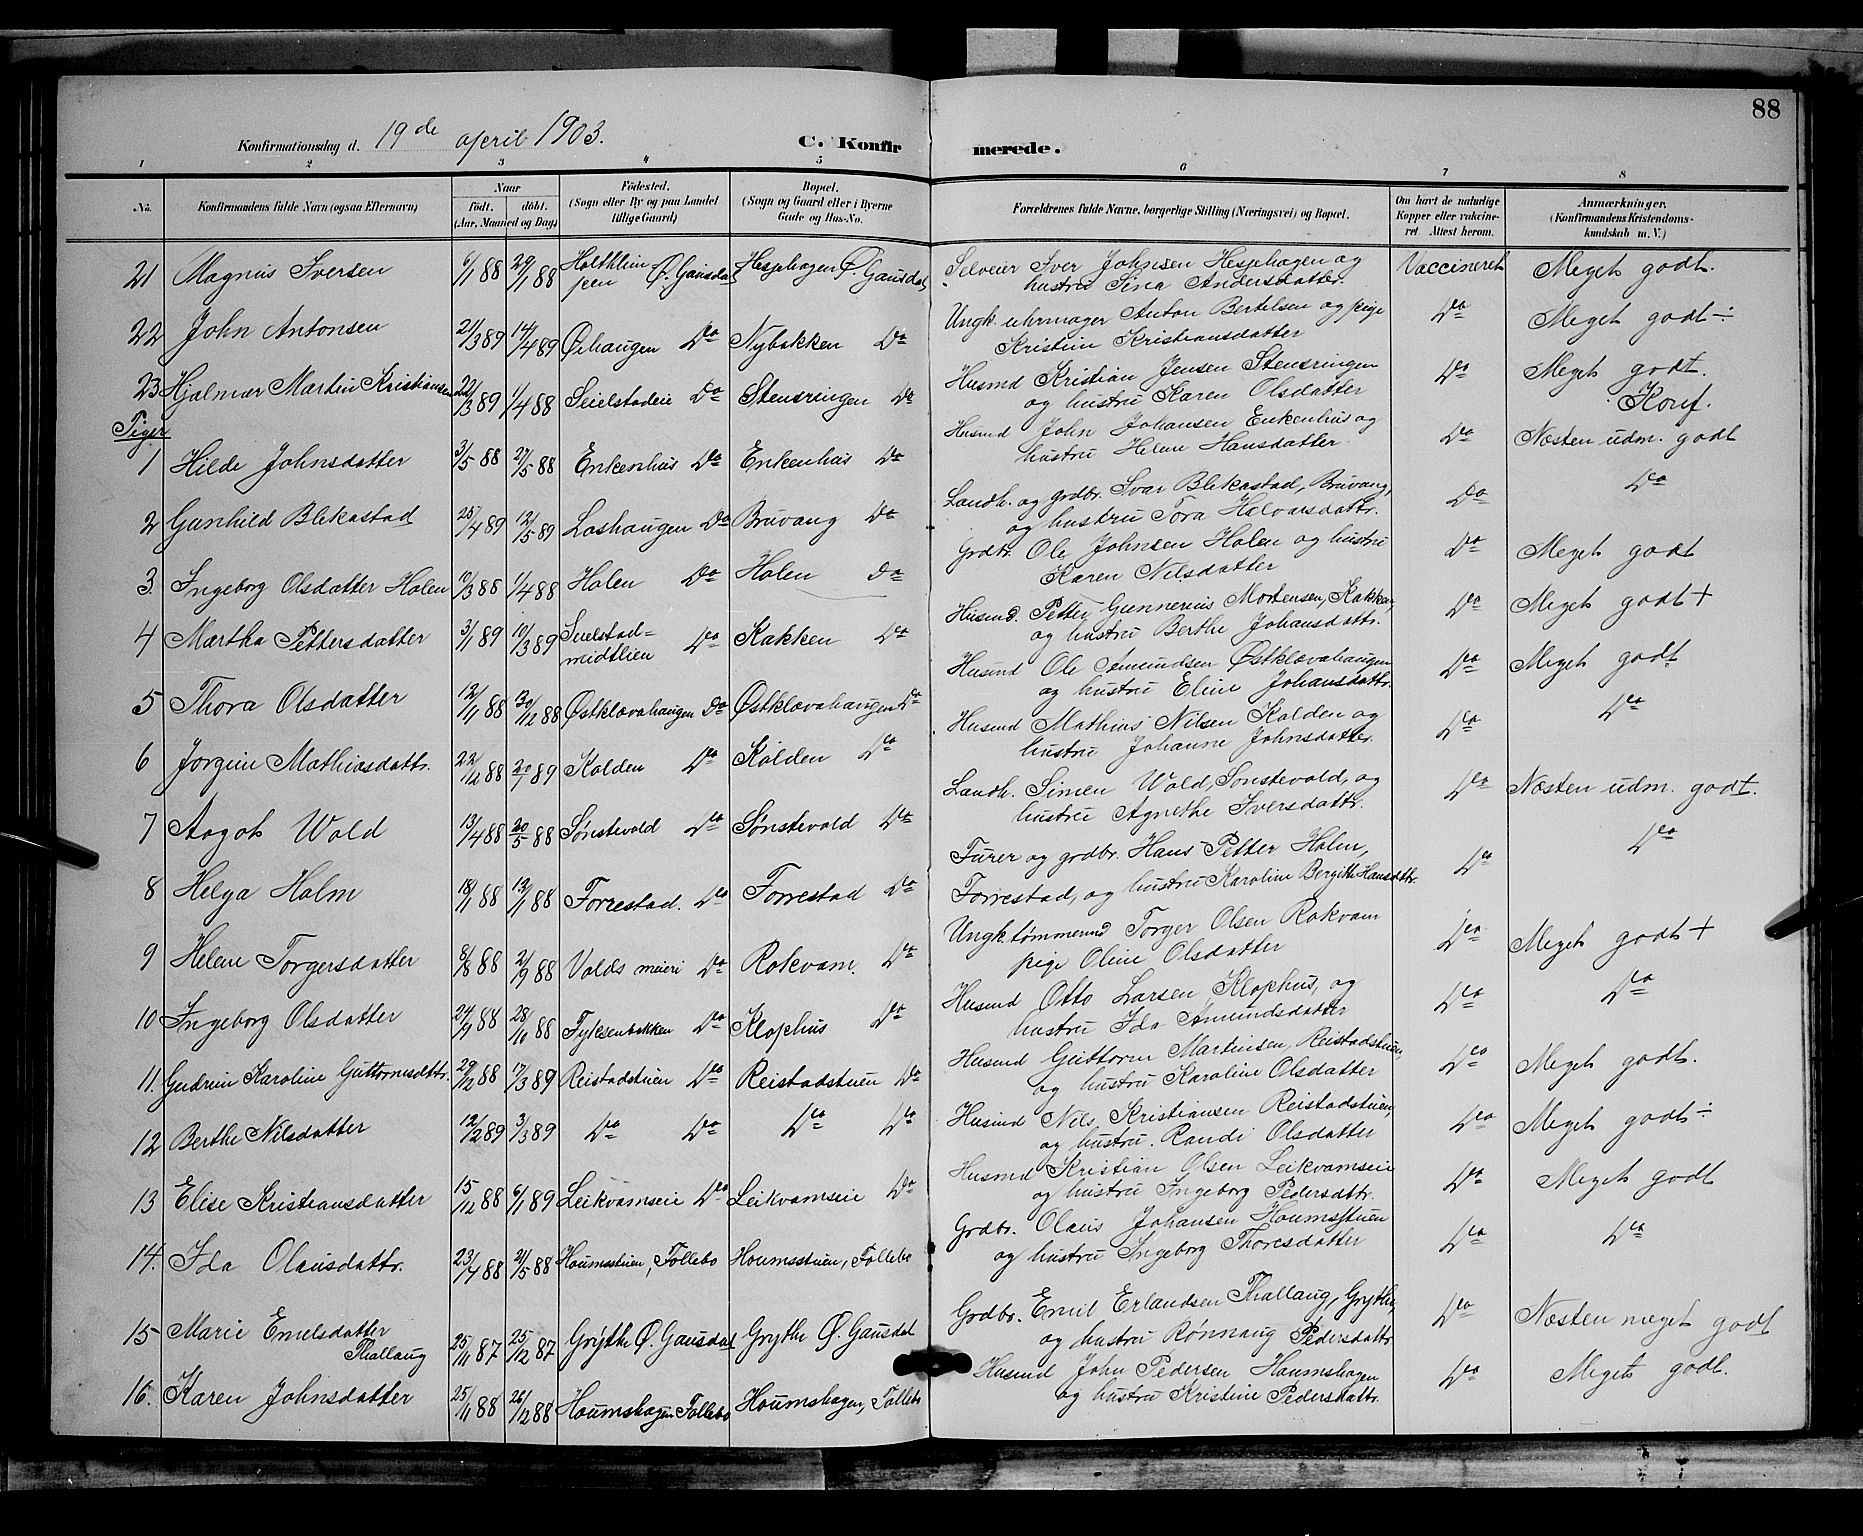 88
Konfirmationsdag d. 19de april 1903. C. Konfirmerede.
1 2 3 4 5 6 7 8
No. Konfirmandens fulde Navn (ogsaa Efternavn) Naar født. døbt. (Aar, Maaned og Dag) Fødested. (Sogn eller By og paa Landet tillige Gaard) Bopæl. (Sogn og Gaard eller i Byerne Gade og Hus-No. Forældrenes fulde Navne, borgerlige Stilling (Næringsvei) og Bopæl. Om havt de naturlige Kopper eller vaccineret Attest herom. Anmærkninger. (Konfirmandens Kristendomskundskab m. V.)
21 Magnus Iversen 6/1 88 29/1 88 Ø. Gausdal Hesphagen Ø. Gausdal Selveier Iver Johnsen Hesphagen og Vaccineret Meget godt.
hustru Sina Andersdatter.
22 John Antonsen 21/3 89 14/4 89 Øihaugen Do Nybakken Do Ungk. uhrmager Anton Bertelsen og pige Do Meget godt ÷
Kristine Kristiansdatter
23 Hjalmar Martin Kristiansen 22/3 89 1/4 88 Seielstadeie Do Stensringen Do Husmd Kristian Jensen Stensringen Do Meget godt.
og hustru Karen Olsdatter Konf.
Piger
1 Hilde Johnsdatter 3/5 88 27/5 88 Enkenhus Do Enkenhus Do Husmd John Johansen Enkenhus og Do Næsten udm. godt
hustru Helene Hansdatter
2 Gunhild Blekastad 25/4 89 12/5 89 Loshaugen Do Bruvang Do Landh. og grdbr. Ivar Blekastad, Bruvang, Do Do
og hustru Tora Halvorsdattr.
3. Ingeborg Olsdatter Holen 10/3 88 1/4 88 Holen Do Holen Do Grdbr. Ole Johnsen Holen og hustru Do Meget godt
Karen Nilsdatter
4 Martha Pettersdatter 3/1 89 10/3 89 Seielstad=midtlien Do Kakken Do Husmd. Petter Gunnerius Mortensen, Kakken, Do Meget godt +
og hustru Berthe Johansdattr.
5 Thora Olsdatter 12/11 88 30/12 88 Østklævahaugen Do Østklævahaugen Do Husmd Ole Amundsen Østklævahaugen Do Meget godt
og hustru Eline Johansdattr.
6 Jørgine Mathiasdattr. 22/12 88 20/1 89 Kolden Do Kolden Do Husmd Mathias Nilsen Kolden og Do Do
hustru Johanne Johnsdatter.
7 Aagot Wold 13/4 88 20/5 88 Sønstevold Do Sønstevold Do Landh. Simen Wold, Sønstevold, og Do Næsten udm. godt.
hustru Agnethe Iversdattr.
8 Helga Holm 18/1 88 12/1 88 Forrestad. Do Forrestad Do Furer og grdbr. Hans Petter Holm, Do Do
Forrestad, og hustru Karoline Bergithe Hansdattr.
9 Helene Torgersdatter 8/8 88 2/9 88 Volds meieri Do Rokvam. Do Ungk. tømmermd Torger Olsen Rokvam Do Meget godt +
pige Oline Olsdatter
10 Ingeborg Olsdatter 24/9 88 28/10 88 Fyksenbakken Do Klophus Do Husmd Otto Larsen Klophus, og Do Do
hustru Ida Amundsdatter
11. Gudrun Karoline Guttormsdattr. 29/12 88 17/3 89 Reistadstuen Do Reistadstuen Do Husmd Guttorm Martinsen, Reistadstuen Do Meget godt.
og hustru Karoline Olsdatter
12 Berthe Nilsdatter 12/2 89 3/3 89 Do Do Do Do Husmd Nils Kristiansen Reistadstuen, Do Meget godt ÷
og hustru. Randi Olsdatter
13 Elise Kristiansdatter 15/12 88 6/1 89 Leikvamseie Do Leikvamseie Do Husmd Kristian Olsen Leikvamseie Do Meget godt
og hustru Ingeborg Pedersdattr.
14. Ida Olausdattr. 23/4 88 21/5 88 Houmsstuen, Follebo Houmsstuen, Follebo Grdbr. Olaus Johansen Houmsstuen Do Do
og hustru Ingeborg Thoresdatter
15 Marie Emelsdatter Thallaug 25/11 87 25/12 87 Grythe Ø. Gausdal Grythe Ø. Gausdal Grdbr. Emil Erlandsen Thallaug, Grythe, Do Næsten meget godt
og hustru Rønnaug Pedersdattr
16. Karen Johnsdatter 25/11 88 26/12 88 Houmshagen Follebo Houmshagen, Follebo Husmd John Pedersen Houmshagen Do Meget godt.
og hustru Kristine Pedersdattr.